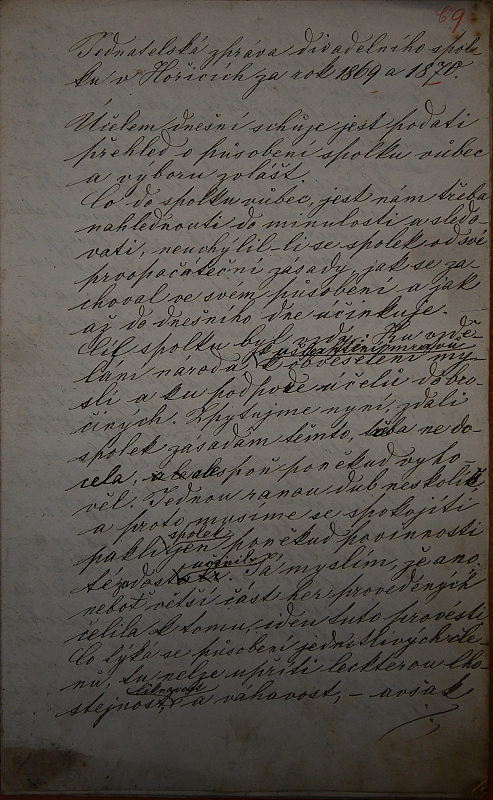 69
Jednatelská zpráva divadelního spol-
ku v Hořicích za rok 1869 a 1870.
Účelem dnešní schůze jest podati
přehled o působení spolku vůbec
a výboru zvlášť.
Co do spolku vůbec, jest nám třeba
nahlédnouti do minulosti a sledo-
vati, neuchýlil-li se spolek od své
prvopočáteční zásady, jak se za-
choval ve svém působení a jak
až do dnešního dne účinkuje.
Cíl spolku byl vždy: Ku vzdě-
k ušlechtění mravů
lání národa, k obveselení my-
sli a ku podpoře účelů dobro-
činných. Zpytujme nyní, zdali
spolek zásadám těmto, třeba ne do-
cela, alespoň poněkud vyho-
věl. Jednou ranou dub neskolíš
a proto musíme se spokojiti
spolek
pakli jen poněkud povinnosti
učinil
té zadost. Já myslím, že ano,
neboť větší část her provedených
čelila k tomu, ideu tuto provésti
Co týká se působení jednotlivých čle-
nů, tu nelze upříti leckterou lho-
liknavost
stejnost, a váhavost, – avšak